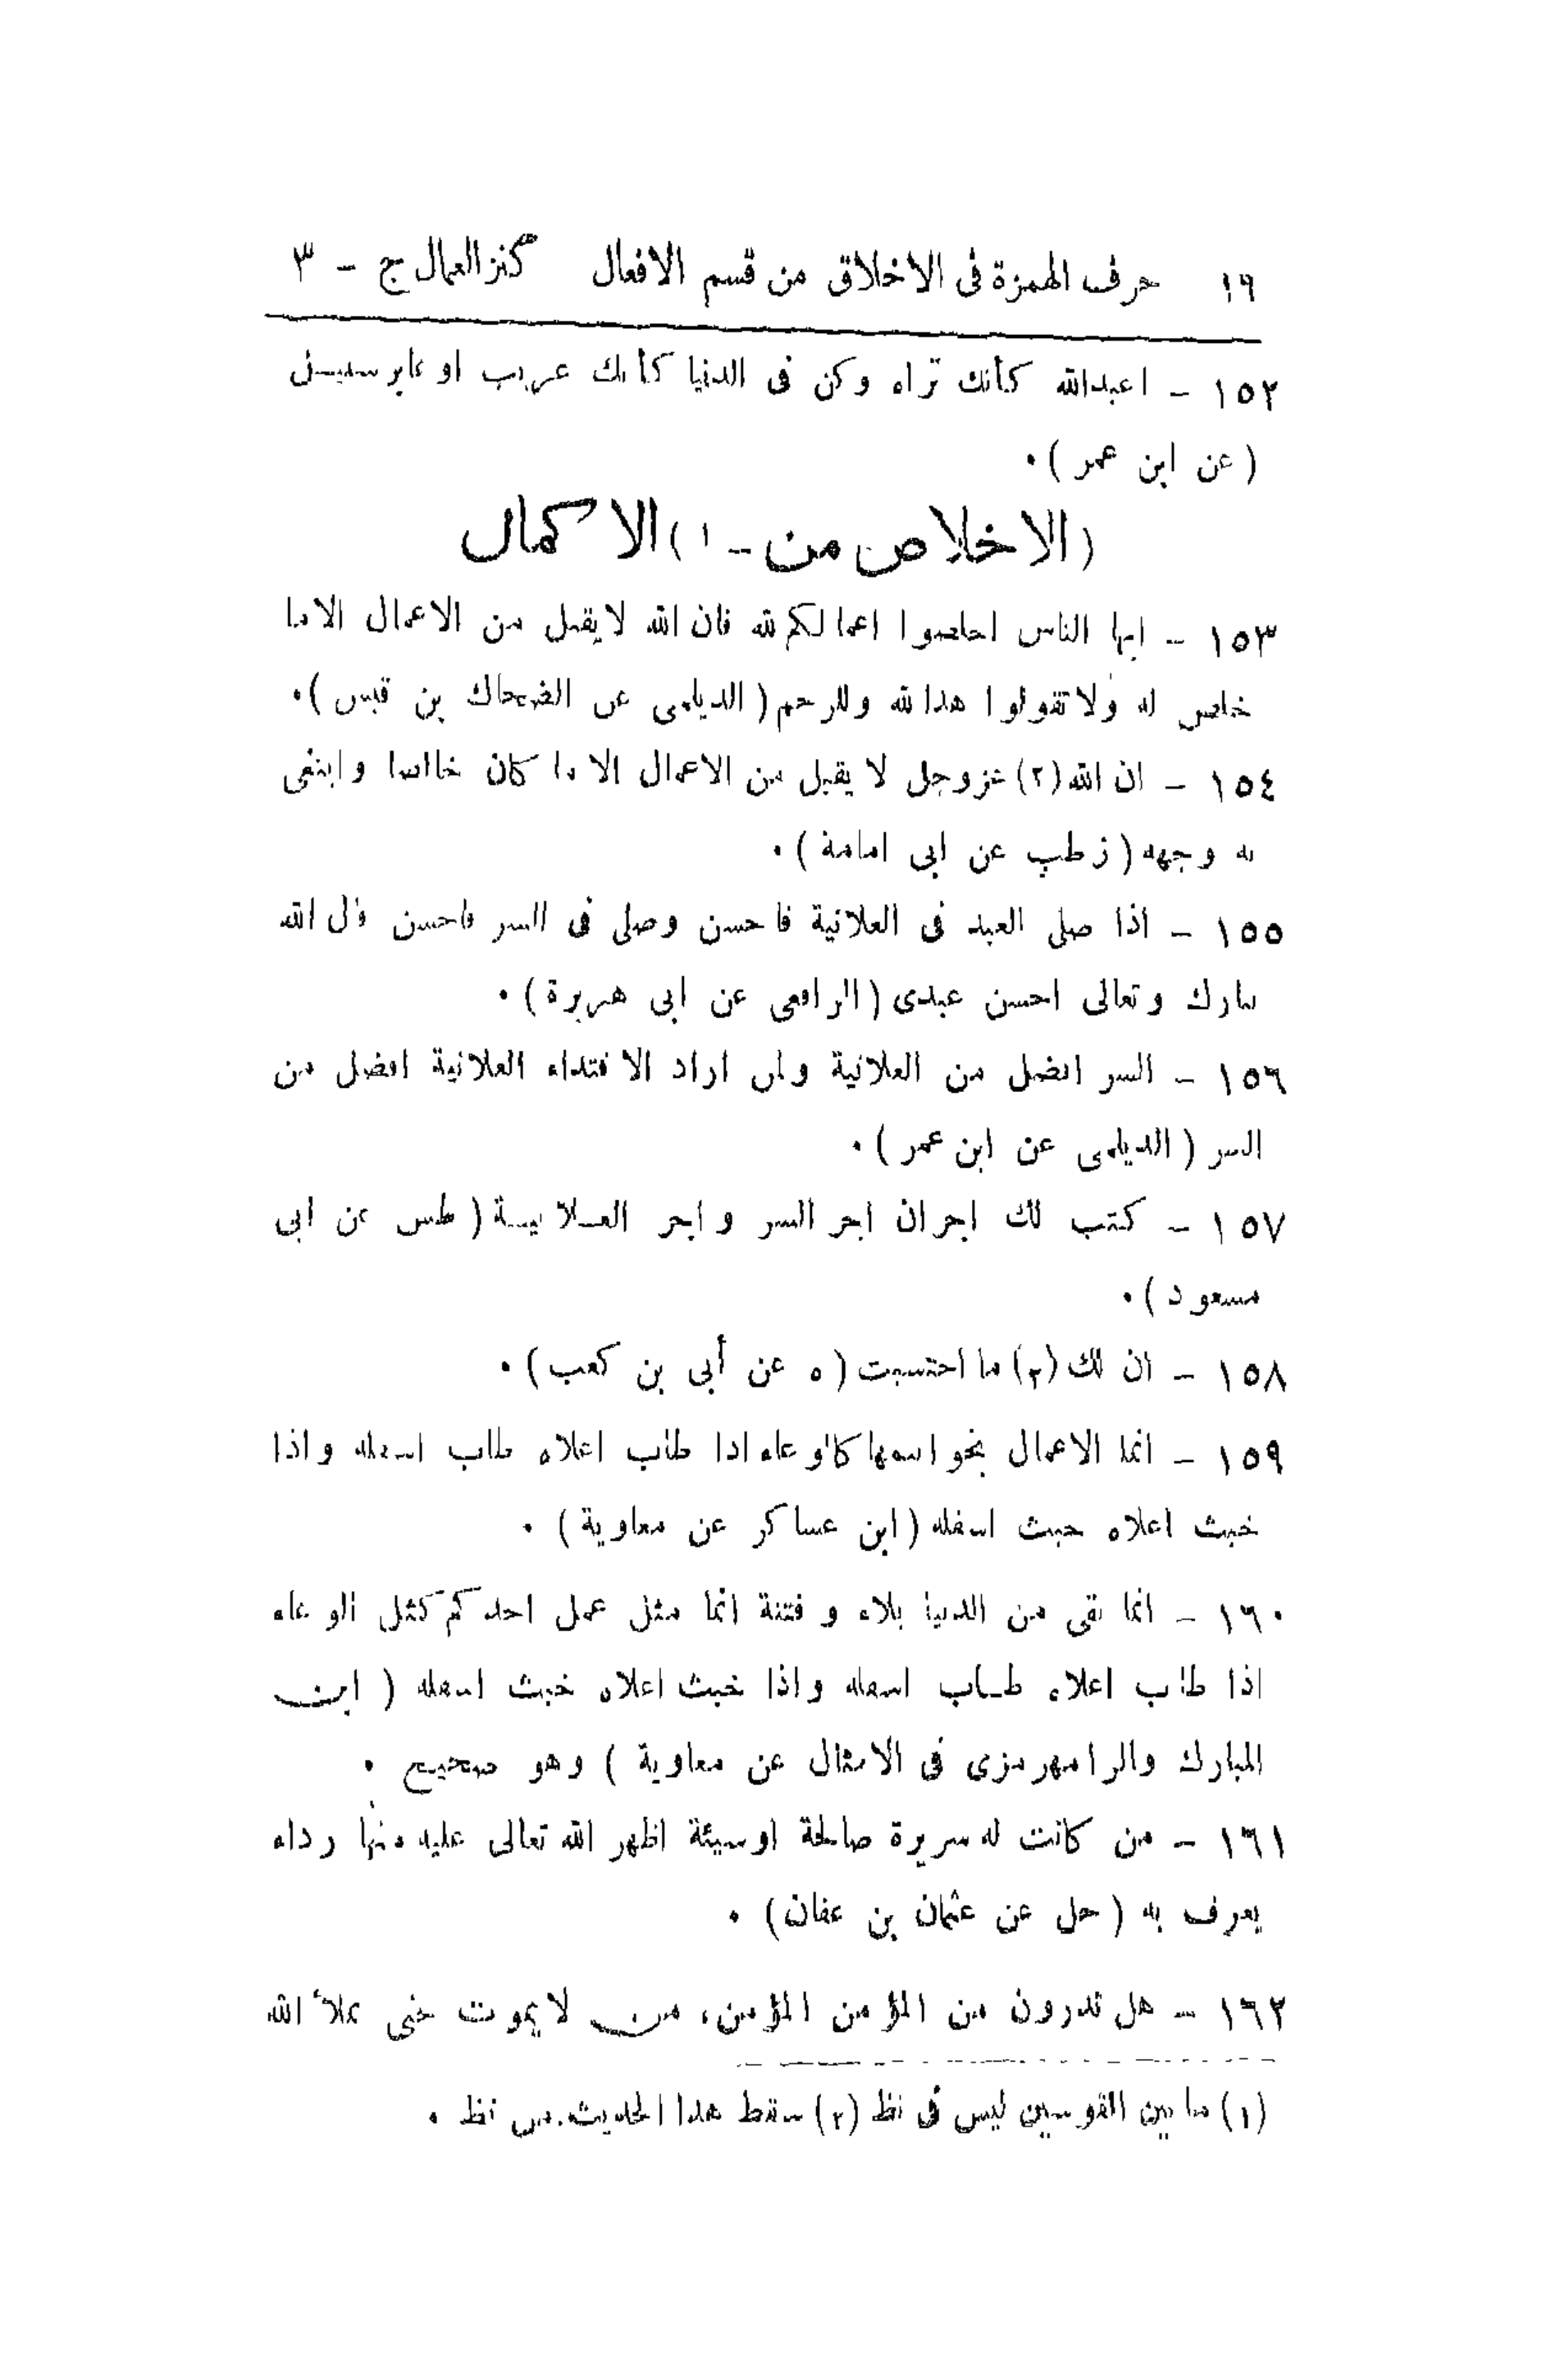 ١٦ حرف الهمزة فى الاخلاق من قسم الافعال كنز العمال ج - ٣
١٥٢ - اعبد الله كأنك تراه وكن فى الدنيا كأنك غريب او عابر سبيل
(عن ابن عمر) .
(الاخلاص من - ١) الاكمال
١٥٣ - ايها الناس اخلصوا اعمالكم لله فان الله لا يقبل من الاعمال الا ما
خلص له ولا تقولوا هذا لله وللرحم (الديلمى عن الضحاك بن قيس) .
١٥٤ - ان الله (٢) عزوجل لا يقبل من الاعمال الا ما كان خالصا وابتغى
به وجهه (ز طب عن ابى امامة) .
١٥٥ - اذا صلى العبد فى العلانية فاحسن وصلى فى السر فاحسن قال الله
تبارك وتعالى احسن عبدى (الرافعى عن ابى هريرة) .
١٥٦ - السر افضل من العلانية ولمن اراد الاقتداء العلانية افضل من
السر (الديلمى عن ابن عمر) .
١٥٧ - كتب لك اجران اجر السر واجر العلانية (طس عن ابى
مسعود) .
١٥٨ - ان لك (٢) ما احتسبت (ه عن أبى بن كعب) .
١٥٩ - انما الاعمال بخواتيمها كالوعاء اذا طاب اعلاه طاب اسفله واذا
خبث اعلاه خبث اسفله (ابن عساكر عن معاوية) .
١٦٠ - انما بقى من الدنيا بلاء و فتنة انما مثل عمل احدكم كمثل الوعاء
اذا طاب اعلاه طاب اسفله واذا خبث اعلاه خبث اسفله (ابن
المبارك والرامهرمزى فى الامثال عن معاوية) وهو صحيح .
١٦١ - من كانت له سريرة صالحة اوسيئة اظهر الله تعالى عليه منها رداء
يعرف به (حل عن عثمان بن عفان) .
١٦٢ - هل تدرون من المؤمن المؤمن، من لا يموت حتى يملأ الله
(١) ما بين القوسين ليس فى نظ (٢) سقط هذا الحديث من نظ .